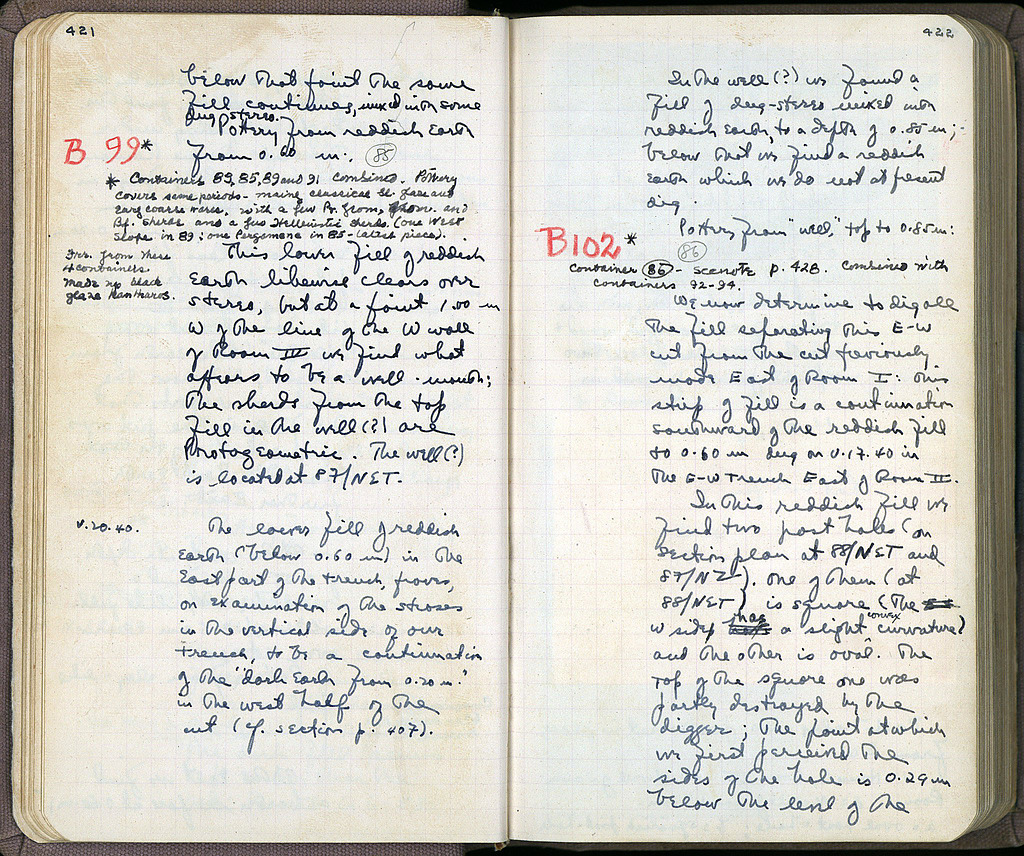 421
below that point the same
fill continues, mixed with some
dug stereo.
Pottery from reddish earth
B 99* from 0.60 m:. 85
* Containers 83, 85, 89 and 91 combined. Pottery
covers same periods - mainly classical bl. glaze and
early coarse wares. with a few Pr. Geom, Geom. and
B.f. sherds and a few Hellenistic sherds. (one West
slope in 89; one Pergamene in 85 - latest piece).
Inv. from these
4 containers
made up black
glaze kantharos.
This lower fill of reddish
earth likewise clears over
stereo, but at a point 1.00 m
W of the line of the W wall
of Room III we find what
appears to be a well-mouth;
the sherds from the top
fill in the well (?) are
Protogeometric. The well (?)
is located at 87/NET.
V.20.40.
The lower fill of reddish
earth (below 0.60 m) in the
East part of the trench, proves,
on examination of the stroses
in the vertical side of our
trench, to be a continuation
of the "dark earth from 0.20 m."
in the west half of the
cut (cf. section p. 407).
422
In the well (?) we found a
fill of dug-stereo mixed with
reddish earth, to a depth of 0.85 m;
below that we find a reddish
earth which we do not at present
dig.
Pottery from "well," top to 0.85 m:
B102* 86
container 86 - see note p. 428. combined with
containers 92-94.
We now determine to dig all
the fill separating this E-W
cut from the cut previously
made East of Room I: this
strip of fill is a continuation
southward of the reddish fill
to 0.60 m dug on V.17.40 in
the E-W trench East of Room II.
In this reddish fill we
find two post holes (on
section plan at 88/NET and
87/NZ). One of them (at
88/NET) is square (the
W side has a slight convex curvature)
and the other is oval. The
top of the square one was
partly destroyed by the
digger; the point at which
we first perceived the
sides of the hole is 0.29 m
below the level of the